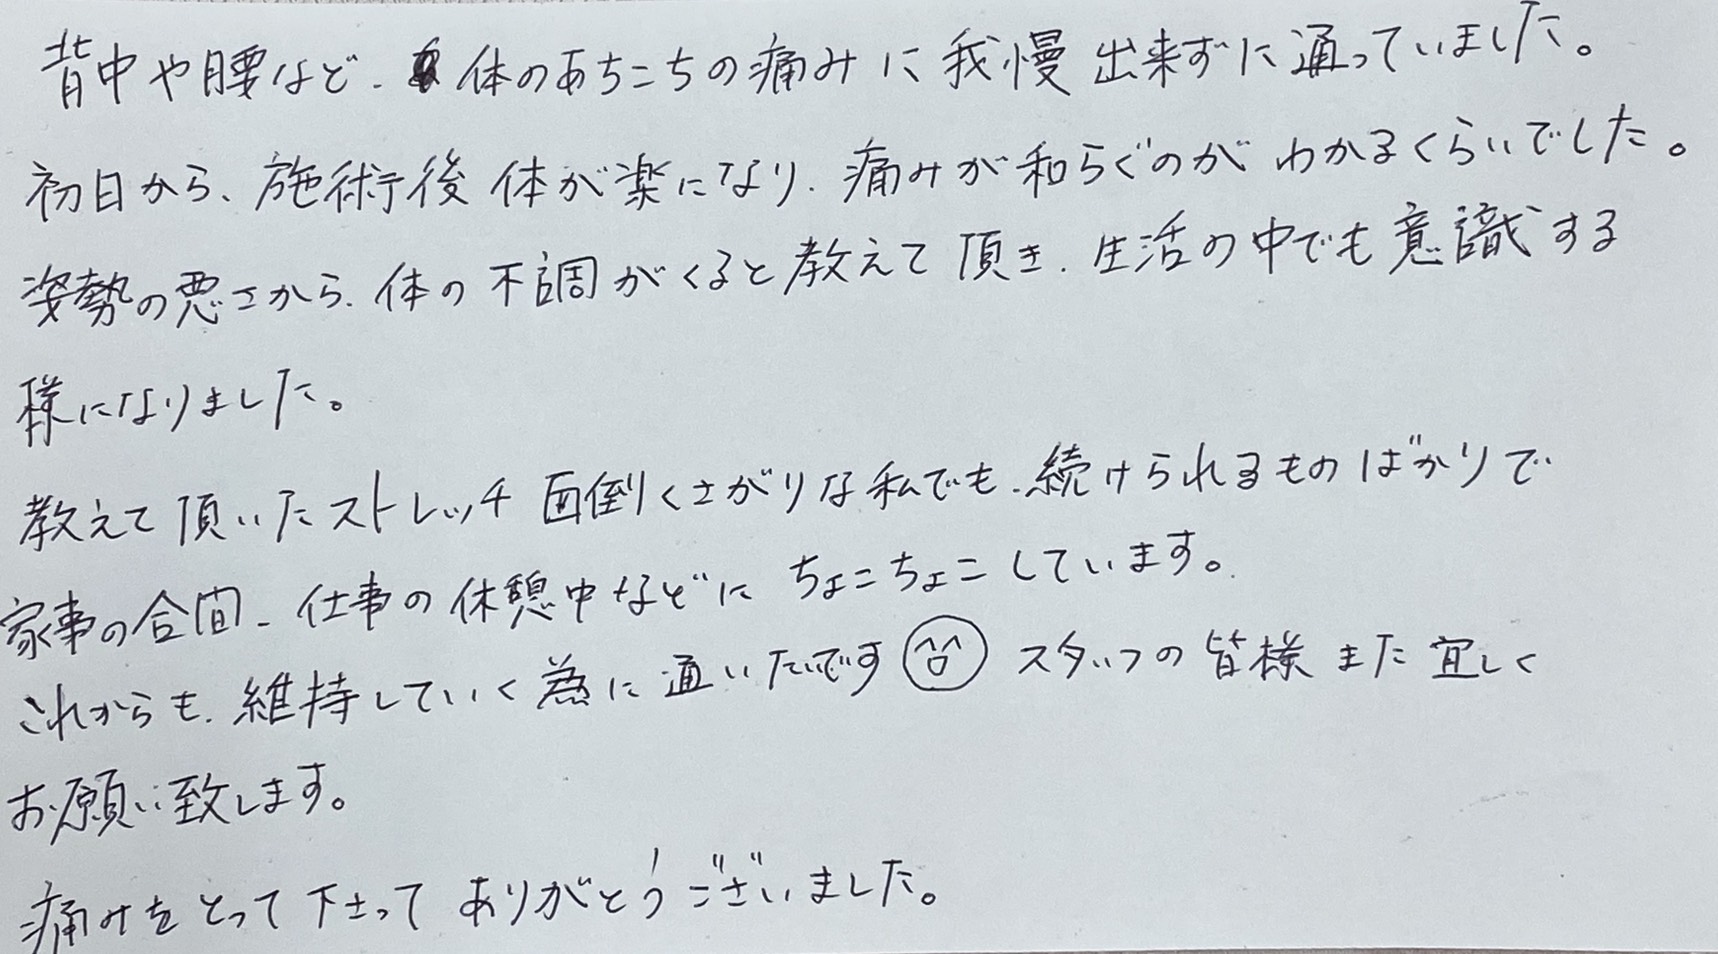 背中や腰など、体のあちこちの痛みに我慢出来ずに通っていました。
初日から、施術後体が楽になり、痛みが和らぐのがわかるくらいでした。
姿勢の悪さから、体の不調がくると教えて頂き、生活の中でも意識する
様になりました。
教えて頂いたストレッチ面倒くさがりな私でも、続けられるものばかりで
家事の合間、仕事の休憩中などにちょこちょこしています。
これからも、維持していく為に通いたいです スタッフの皆様また宜しく
お願い致します。
痛みをとって下さってありがとうございました。